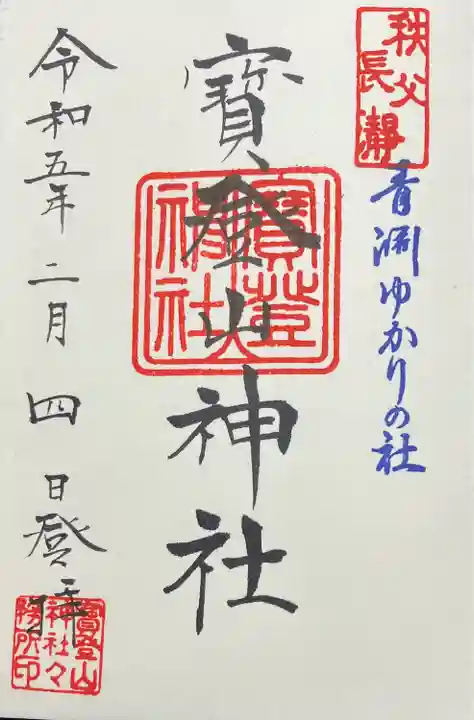 秩父
長瀞
青淵ゆかりの社
寳登山神社
寳登山
神社
令和五年二月四日登拝
寳登山
神社々
務所印